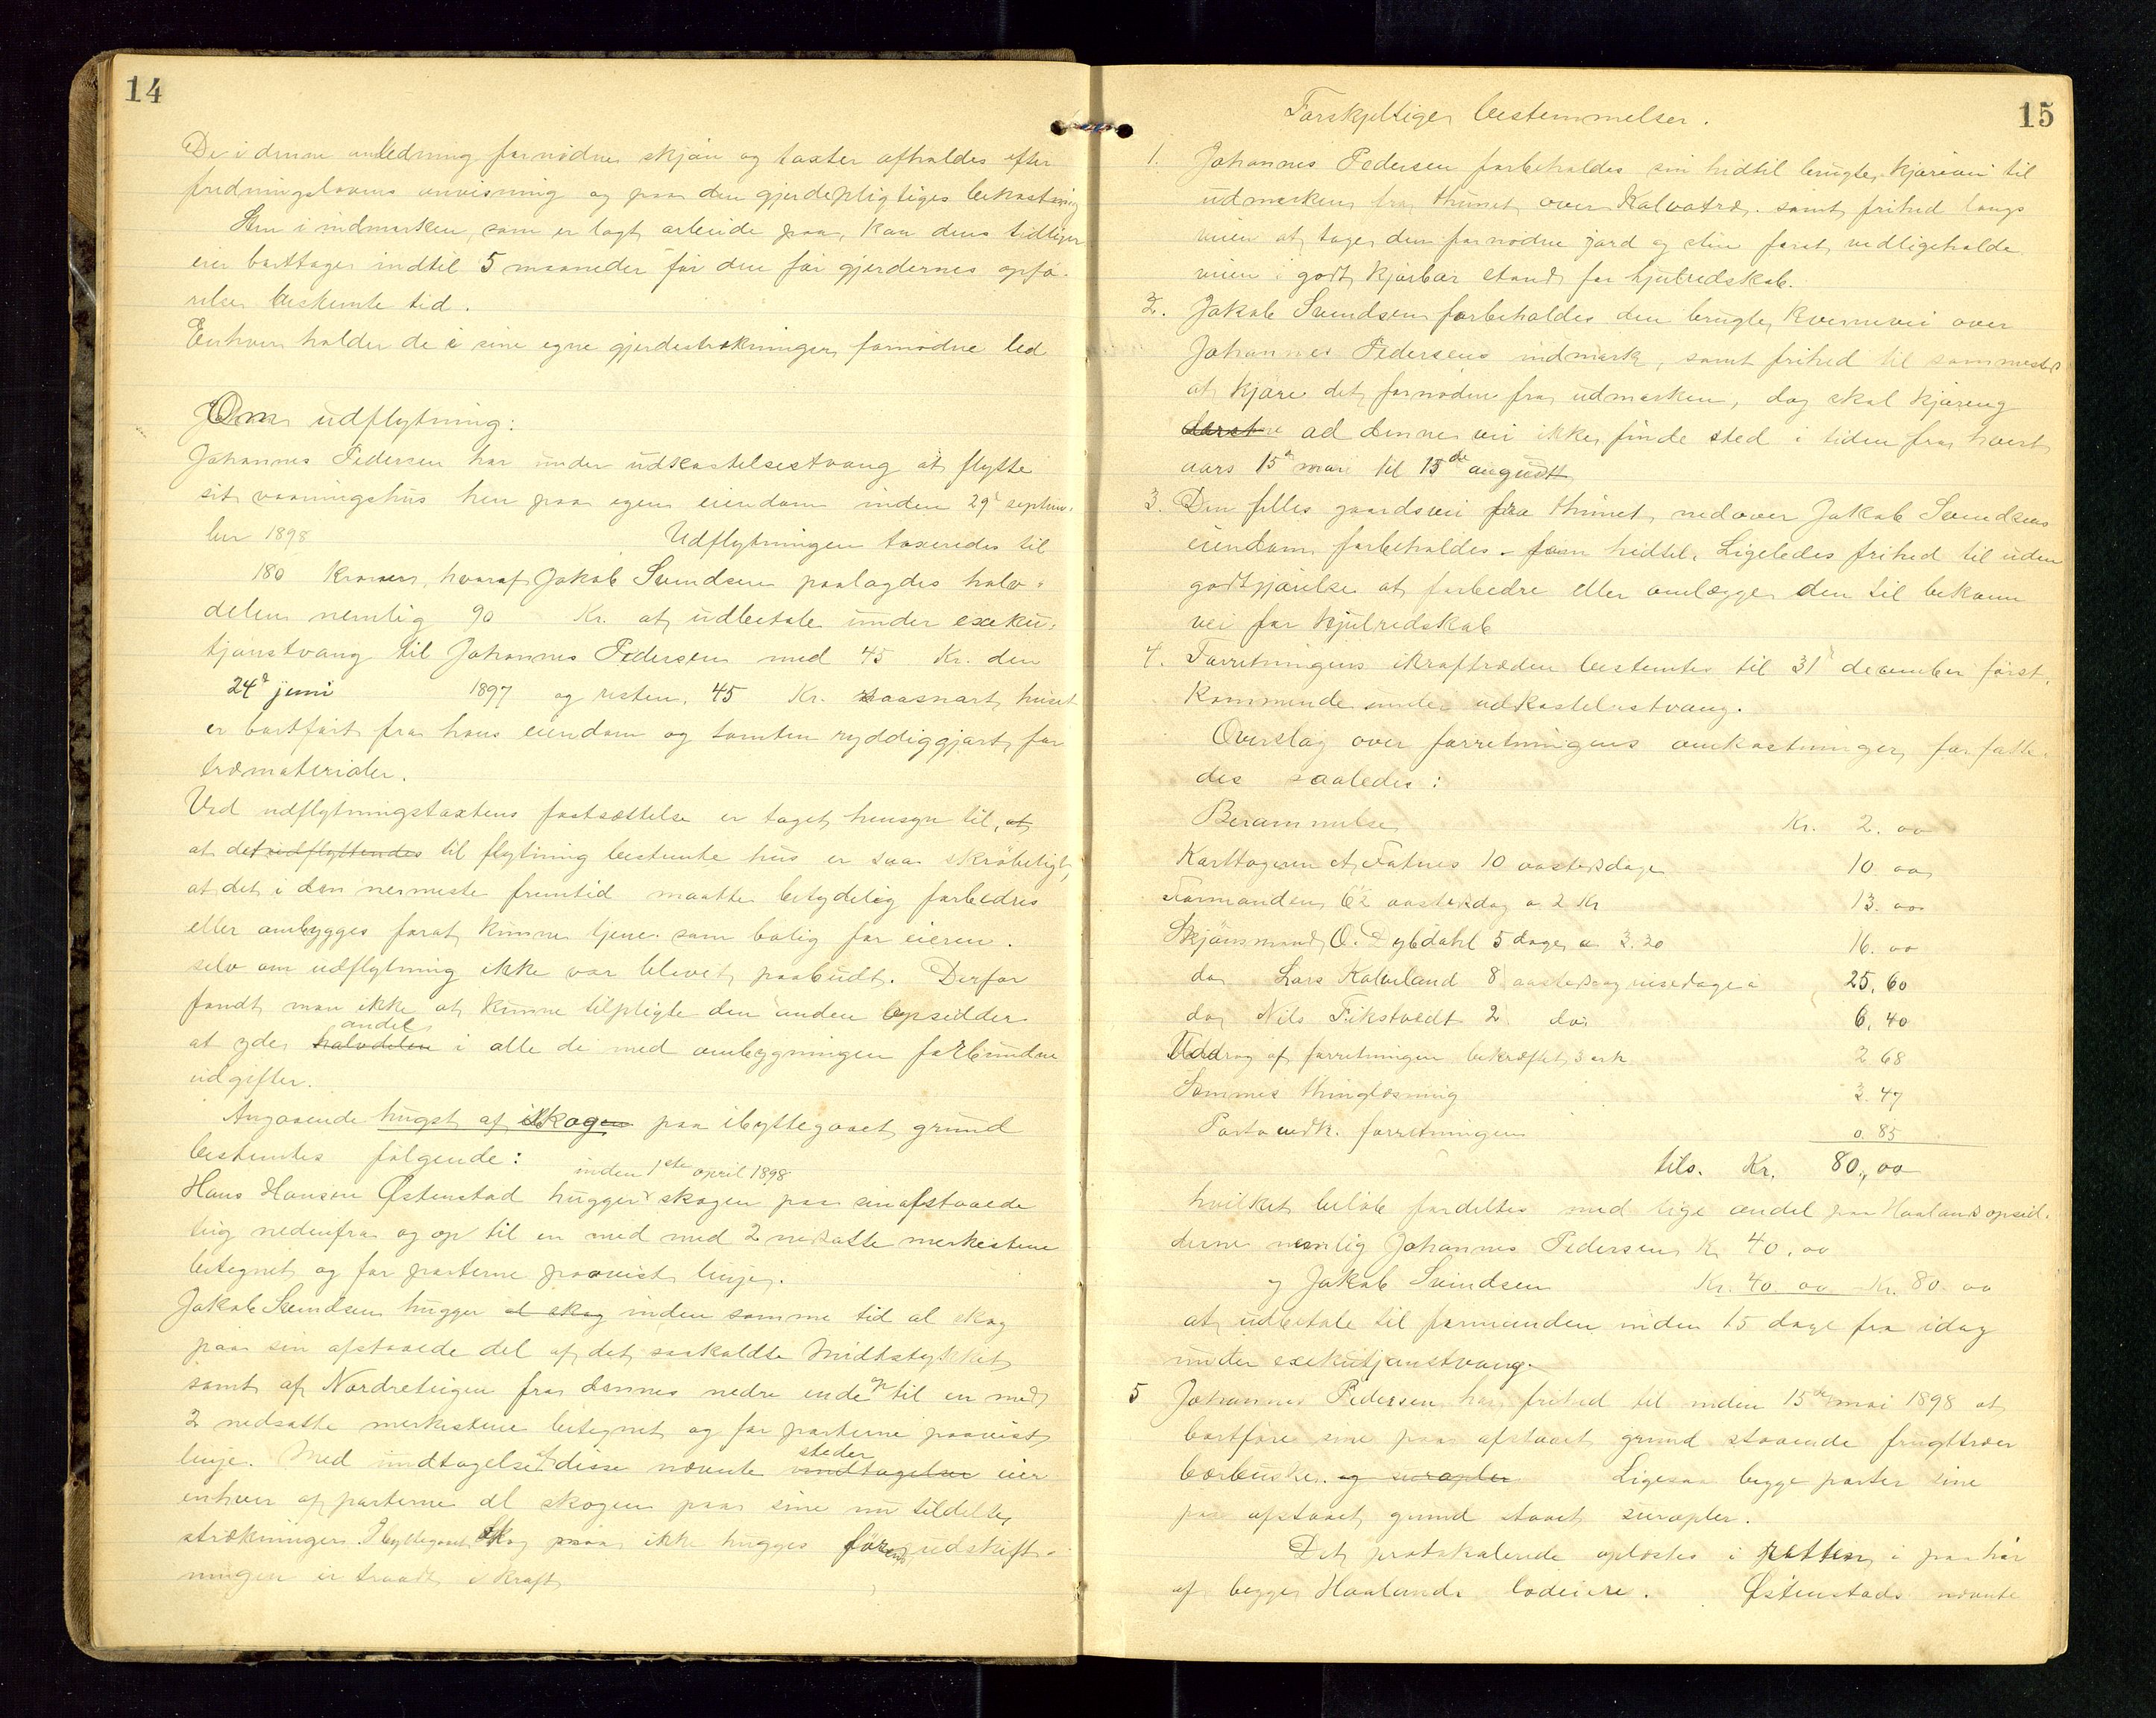 14
De i denne anledning fornødne skjøn og taxter afholdes efter
fredningslovens anvisning og paa den gjerdepligtiges bekostning
Sten i indmarken, som er lagt arbeide paa, kan dens tidligere
eier borttage indtil 5 maaneder før den for gjerdernes opfø-
relse bestemte tid.
Enhver holder de i sine egne gjerdestrækninger fornødne led
Om udflytning:
Johannes Pedersen har under udkastelsestvang at flytte
sit vaaningshus hen paa egen eiendom inden 29d septem-
ber 1898 Udflytningen taxeredes til
180 Kroner, hvoraf Jakob Svendsen paalagdes halv-
delen nemlig 90 Kr. at udbetale under exeku-
tjonstvang til Johannes Pedersen med 45 Kr. den
24d juni 1897 og resten, 45 Kr. saasnart huset
er bortført fra hans eiendom og tomten ryddiggjort for
træmaterialer.
Ved udflytningstaxtens fastsættelse er taget hensyn til, at
at det udflyttendes til flytning bestemte hus er saa skrøbeligt,
at det i den nermeste fremtid maatte betydelig forbedres
eller ombygges forat kunne tjene som bolig for eieren.
selv om udflytning ikke var blevet paabudt. Derfor
fandt man ikke at kunne tilpligte den anden opsidder
at yde halvdelen andel i alle de med ombygningen forbundne
udgifter.
Angaaende hugst af skogen paa ibyttegaaet grund
bestemtes følgende:
inden 1ste april 1898
Hans Hansen Østenstad hugger skogen paa sin afstaaede
teig nedenfra og op til en med 2 nedsatte merkestene
betegnet og for parterne paavist linje.
Jakob Svendsen hugger al skog inden samme tid al skog
paa sin afstaaede del af det saakaldte Midtstykket
samt af Nordreteigen fra dennes nedre ende op til en med
2 nedsatte merkestene betegnet og for parterne paavist
linje. Med undtagelse af disse nævnte undtagelser steder eier
enhver af parterne al skogen paa sine nu tildelte
strækninger. Ibyttegaaet skog maa ikke hugges førend udskift-
ningen er traadt i kraft
15
Forskjellige bestemmelser.
1. Johannes Pedersen forbeholdes sin hidtil brugte kjørevei til
udmarken fra thunet over Kalvatræ. samt frihed langs
veien at tage den fornødne jord og sten forat vedligeholde
veien i godt kjørbar stand for hjulredskab.
2. Jakob Svendsen forbeholdes den brugte kvernevei over
Johannes Pedersens indmark, samt frihed til sammesteds
at kjøre det fornødne fra udmarken, dog skal kjøreng
ad denne vei ikke finde sted i tiden fra hvert
aars 15d mai til 15de august
3. Den felles gaardsvei fra thunet nedover Jakob Svendsens
eiendom forbeholdes som hidtil. Ligeledes frihed til uden
godtgjørelse at forbedre eller omlægge den til bekvem
vei for hjulredskab
4. Forretningens ikrafttræden bestemtes til 31d december først-
kommende under udkastelsestvang.
Overslag over forretningens omkostninger forfatte-
des saaledes:
Berammelse Kr. 2. 00
Karttageren A. Fatnes 10 aastedsdage 10. 00
Formanden 6½ aastedsdag a 2 Kr 13. 00
Skjønsmand O. Dybdahl 5 dage a 3.20 16. 00
do Lars Kalveland 8 aasteds og reisedage a 25, 60
do Nils Fikstvedt 2 do 6, 40
Uddrag af forretningen bekræftet 3 ark 2 68
Sammes thinglæsning 3. 47
Porto vedk. forretningen 0. 85
tils. Kr. 80,00
hvilket beløb fordeltes med lige andel paa Haalands opsid-
derne nemlig Johannes Pedersen Kr 40, 00
og Jakob Svendsen Kr. 40 00 Kr. 80. 00
at udbetale til formanden inden 15 dage fra idag
under exekutjonstvang.
5 Johannes Pedersen har frihed til inden 15de mai 1898 at
bortføre sine paa afstaaet grund staaende frugttræer
bærbuske. og suræpler Ligesaa begge parter sine
paa afstaaet grund staaet suræpler.
Det protokolerede oplæstes i retten i paahør
af begge Haalands lodeiere. Østenstads nævnte